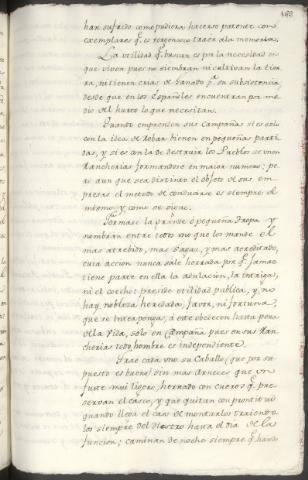 168
han sufrido como pudiera hacerse patente con
exemplares q.e es forzoso traér á la memoria.
La utilidad q.e buscan es por la necesidad en
que viven pues no siembran ni cultivan la tier
ra, ni tienen crias de Ganado p.a su subsistencia
desde que en los Españoles encuentran por me
dio del hurto lo que necesitan.
Quando emprenden sus Campañas si es solo
con la idea de robar bienen en pequeñas parti
das, y si es con la de destruir los Pueblos se unen
Rancherias formandose en maior numero; pe
ro aun que sea distinto el objeto de sus em
presas el metodo de conducirse es siempre el
mismo y como se sigue.
Formase la grande ó pequeña Tropa y
nombran entre todos uno que los mande el
mas atrebido, mas sagaz, y mas acreditado,
cuia accion nunca sale herrada por q.e jamas
tiene parte en ella la adulacion, la intriga,
ni el coecho: preside utilidad publica, y no
hay nobleza heredada, favor, ni fortuna,
que se interponga, á este obedecen hasta per
der la Vida, solo en Campaña pues en sus Ran
cherias todo hombre es independiente.
Trae cada uno su Caballo (que por su
puesto es bueno) sin mas arneses que un
fuste mui ligero, herrado con cueros q.e pre
servan el casco, y que quitan con prontitud
quando llega el caso de montarlos trayendo
los siempre del diestro hasta el dia de la
funcion; caminan de noche siempre q.e hara